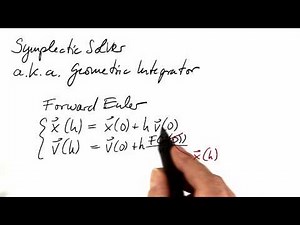 Symplectic Solver
a.k.a. Geometric Integrator
Forward Euler
x⃗(h) = x⃗(0) + h v⃗(0)
v⃗(h) = v⃗(0) + h F(x⃗(0))
x⃗(h)